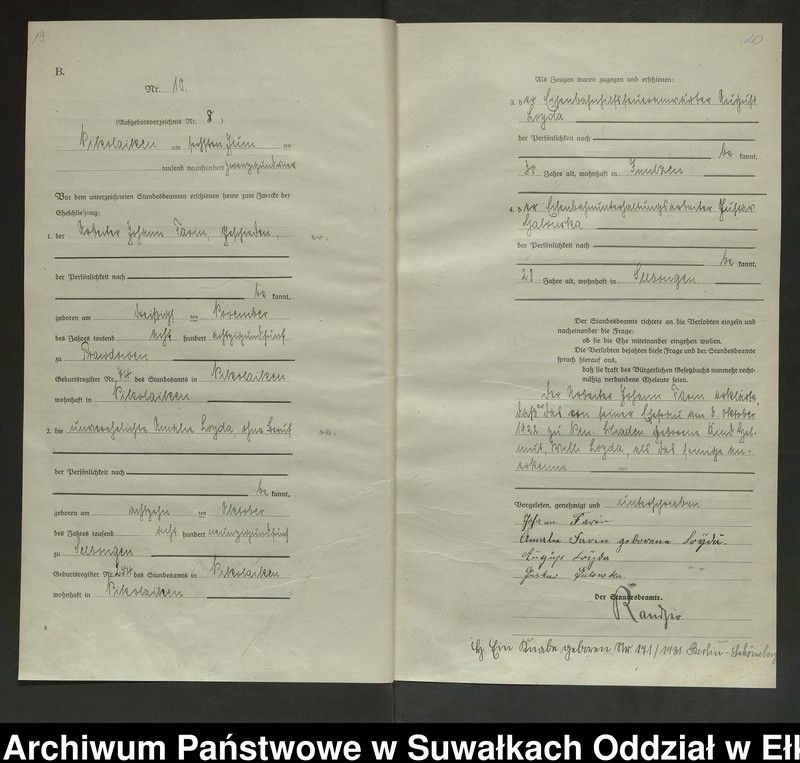 19
B.
Nr. 10.
(Aufgebotsverzeichnis Nr. 8.)
Nikolaiken am sechsten Juni ten
tausend neunhundert zwanzigundvier
Vor dem unterzeichneten Standesbeamten erschienen heute zum Zwecke der
Eheschließung:
1. der Arbeiter Johann Farin, geschieden,
ev.
der Persönlichkeit nach
be kannt,
geboren am dreißig ten November
des Jahres tausend acht hundert achtzigundfünf
zu
Geburtsregister Nr. 74 des Standesamts in Nikolaiken
wohnhaft in Nikolaiken
2. die unverehelichte Amalie Loyda, ohne Beruf
ev.
der Persönlichkeit nach
be kannt,
geboren am achtzehn ten Oktober
des Jahres tausend acht hundert neunzigundfünf
zu Selbongen
Geburtsregister Nr. des Standesamts in Nikolaiken
wohnhaft in Nikolaiken
20
Als Zeugen waren zugegen und erschienen:
3. der August
Loyda
der Persönlichkeit nach
be kannt,
Jahre alt, wohnhaft in
4. der Eisenbahnunterhaltungsarbeiter Gustav
der Persönlichkeit nach
be kannt,
Jahre alt, wohnhaft in Selbongen
Der Standesbeamte richtete an die Verlobten einzeln und
nacheinander die Frage:
ob sie die Ehe miteinander eingehen wollen.
Die Verlobten bejahten diese Frage und der Standesbeamte
sprach hierauf aus,
daß sie kraft des Bürgerlichen Gesetzbuchs nunmehr recht-
mäßig verbundene Eheleute seien.
Der Arbeiter Johann Farin erklärte,
daß das von seiner Ehefrau am 8. Oktober
1922 zu geborene Kind Hel-
mut, Willi Loyda, als das seinige an-
erkenne
Vorgelesen, genehmigt und unterschrieben
Johann Farin
Amalie Farin geborene Loyda.
August Loyda
Gustav
Der Standesbeamte.
Ein Knabe geboren Nr. 171/1931 Berlin-Schöneberg
Archiwum Państwowe w Suwałkach Oddział w Ełk